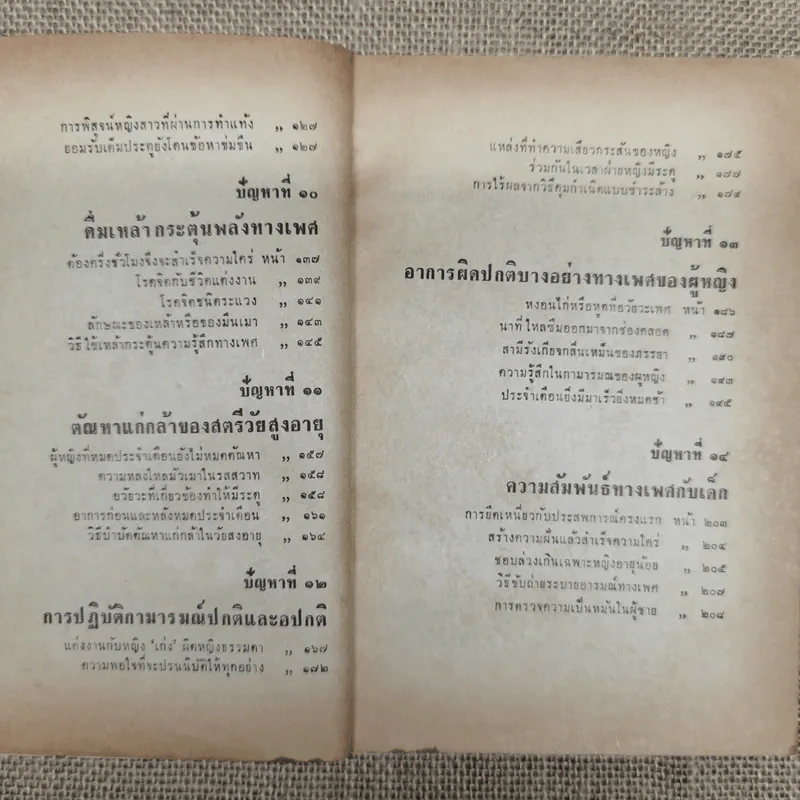 การพิสูจน์หญิงสาวที่ผ่านการทำแท้ง ,, ๑๒๗
ยอมรับเต็มประตูยังโดนข้อหาข่มขืน ,, ๑๒๗
ปัญหาที่ ๑๐
ดื่มเหล้ากระตุ้นพลังทางเพศ
ต้องครึ่งชั่วโมงจึงจะสำเร็จความใคร่ หน้า ๑๓๗
โรคจิตกับชีวิตแต่งงาน ,, ๑๓๙
โรคจิตชนิดระแวง ,, ๑๔๑
ลักษณะของเหล้าหรือของมึนเมา ,, ๑๔๓
วิธีใช้เหล้ากระตุ้นความรู้สึกทางเพศ ,, ๑๔๕
ปัญหาที่ ๑๑
ตัณหาแก่กล้าของสตรีวัยสูงอายุ
ผู้หญิงที่หมดประจำเดือนยังไม่หมดตัณหา ,, ๑๕๗
ความหลงใหลมัวเมาในรสสวาท ,, ๑๕๘
อวัยวะที่เกี่ยวข้องทำให้มีระดู ,, ๑๕๘
อาการก่อนและหลังหมดประจำเดือน ,, ๑๖๑
วิธีบำบัดตัณหาแก่กล้าในวัยสูงอายุ ,, ๑๖๔
ปัญหาที่ ๑๒
การปฏิบัติกามารมณ์ปกติและอปกติ
แต่งงานกับหญิง ‘เก่ง’ ผิดหญิงธรรมดา ,, ๑๖๗
ความพอใจที่จะปรนนิบัติให้ทุกอย่าง ,, ๑๗๒
แหล่งที่ทำความเสียวกระสันของหญิง ,, ๑๗๕
ร่วมกันในเวลาฝ่ายหญิงมีระดู ,, ๑๗๗
การไร้ผลจากวิธีคุมกำเนิดแบบชำระล้าง ,, ๑๗๙
ปัญหาที่ ๑๓
อาการผิดปกติบางอย่างทางเพศของผู้หญิง
หงอนไก่หรือหูดที่อวัยวะเพศ หน้า ๑๘๖
น้ำที่ไหลซึมออกมาจากช่องคลอด ,, ๑๘๗
สามีรังเกียจกลิ่นเหม็นของภรรยา ,, ๑๙๐
ความรู้สึกในกามารมณ์ของผู้หญิง ,, ๑๙๓
ประจำเดือนยิ่งมีมาเร็วยิ่งหมดช้า ,, ๑๙๕
ปัญหาที่ ๑๔
ความสัมพันธ์ทางเพศกับเด็ก
การยึดเหนี่ยวกับประสพการณ์ครั้งแรก หน้า ๒๐๓
สร้างความฝันแล้วสำเร็จความใคร่ ,, ๒๐๔
ชอบล่วงเกินเฉพาะหญิงอายุน้อย ,, ๒๐๕
วิธีขับถ่ายระบายอารมณ์ทางเพศ ,, ๒๐๗
การตรวจความเป็นหมันในผู้ชาย ,, ๒๐๘